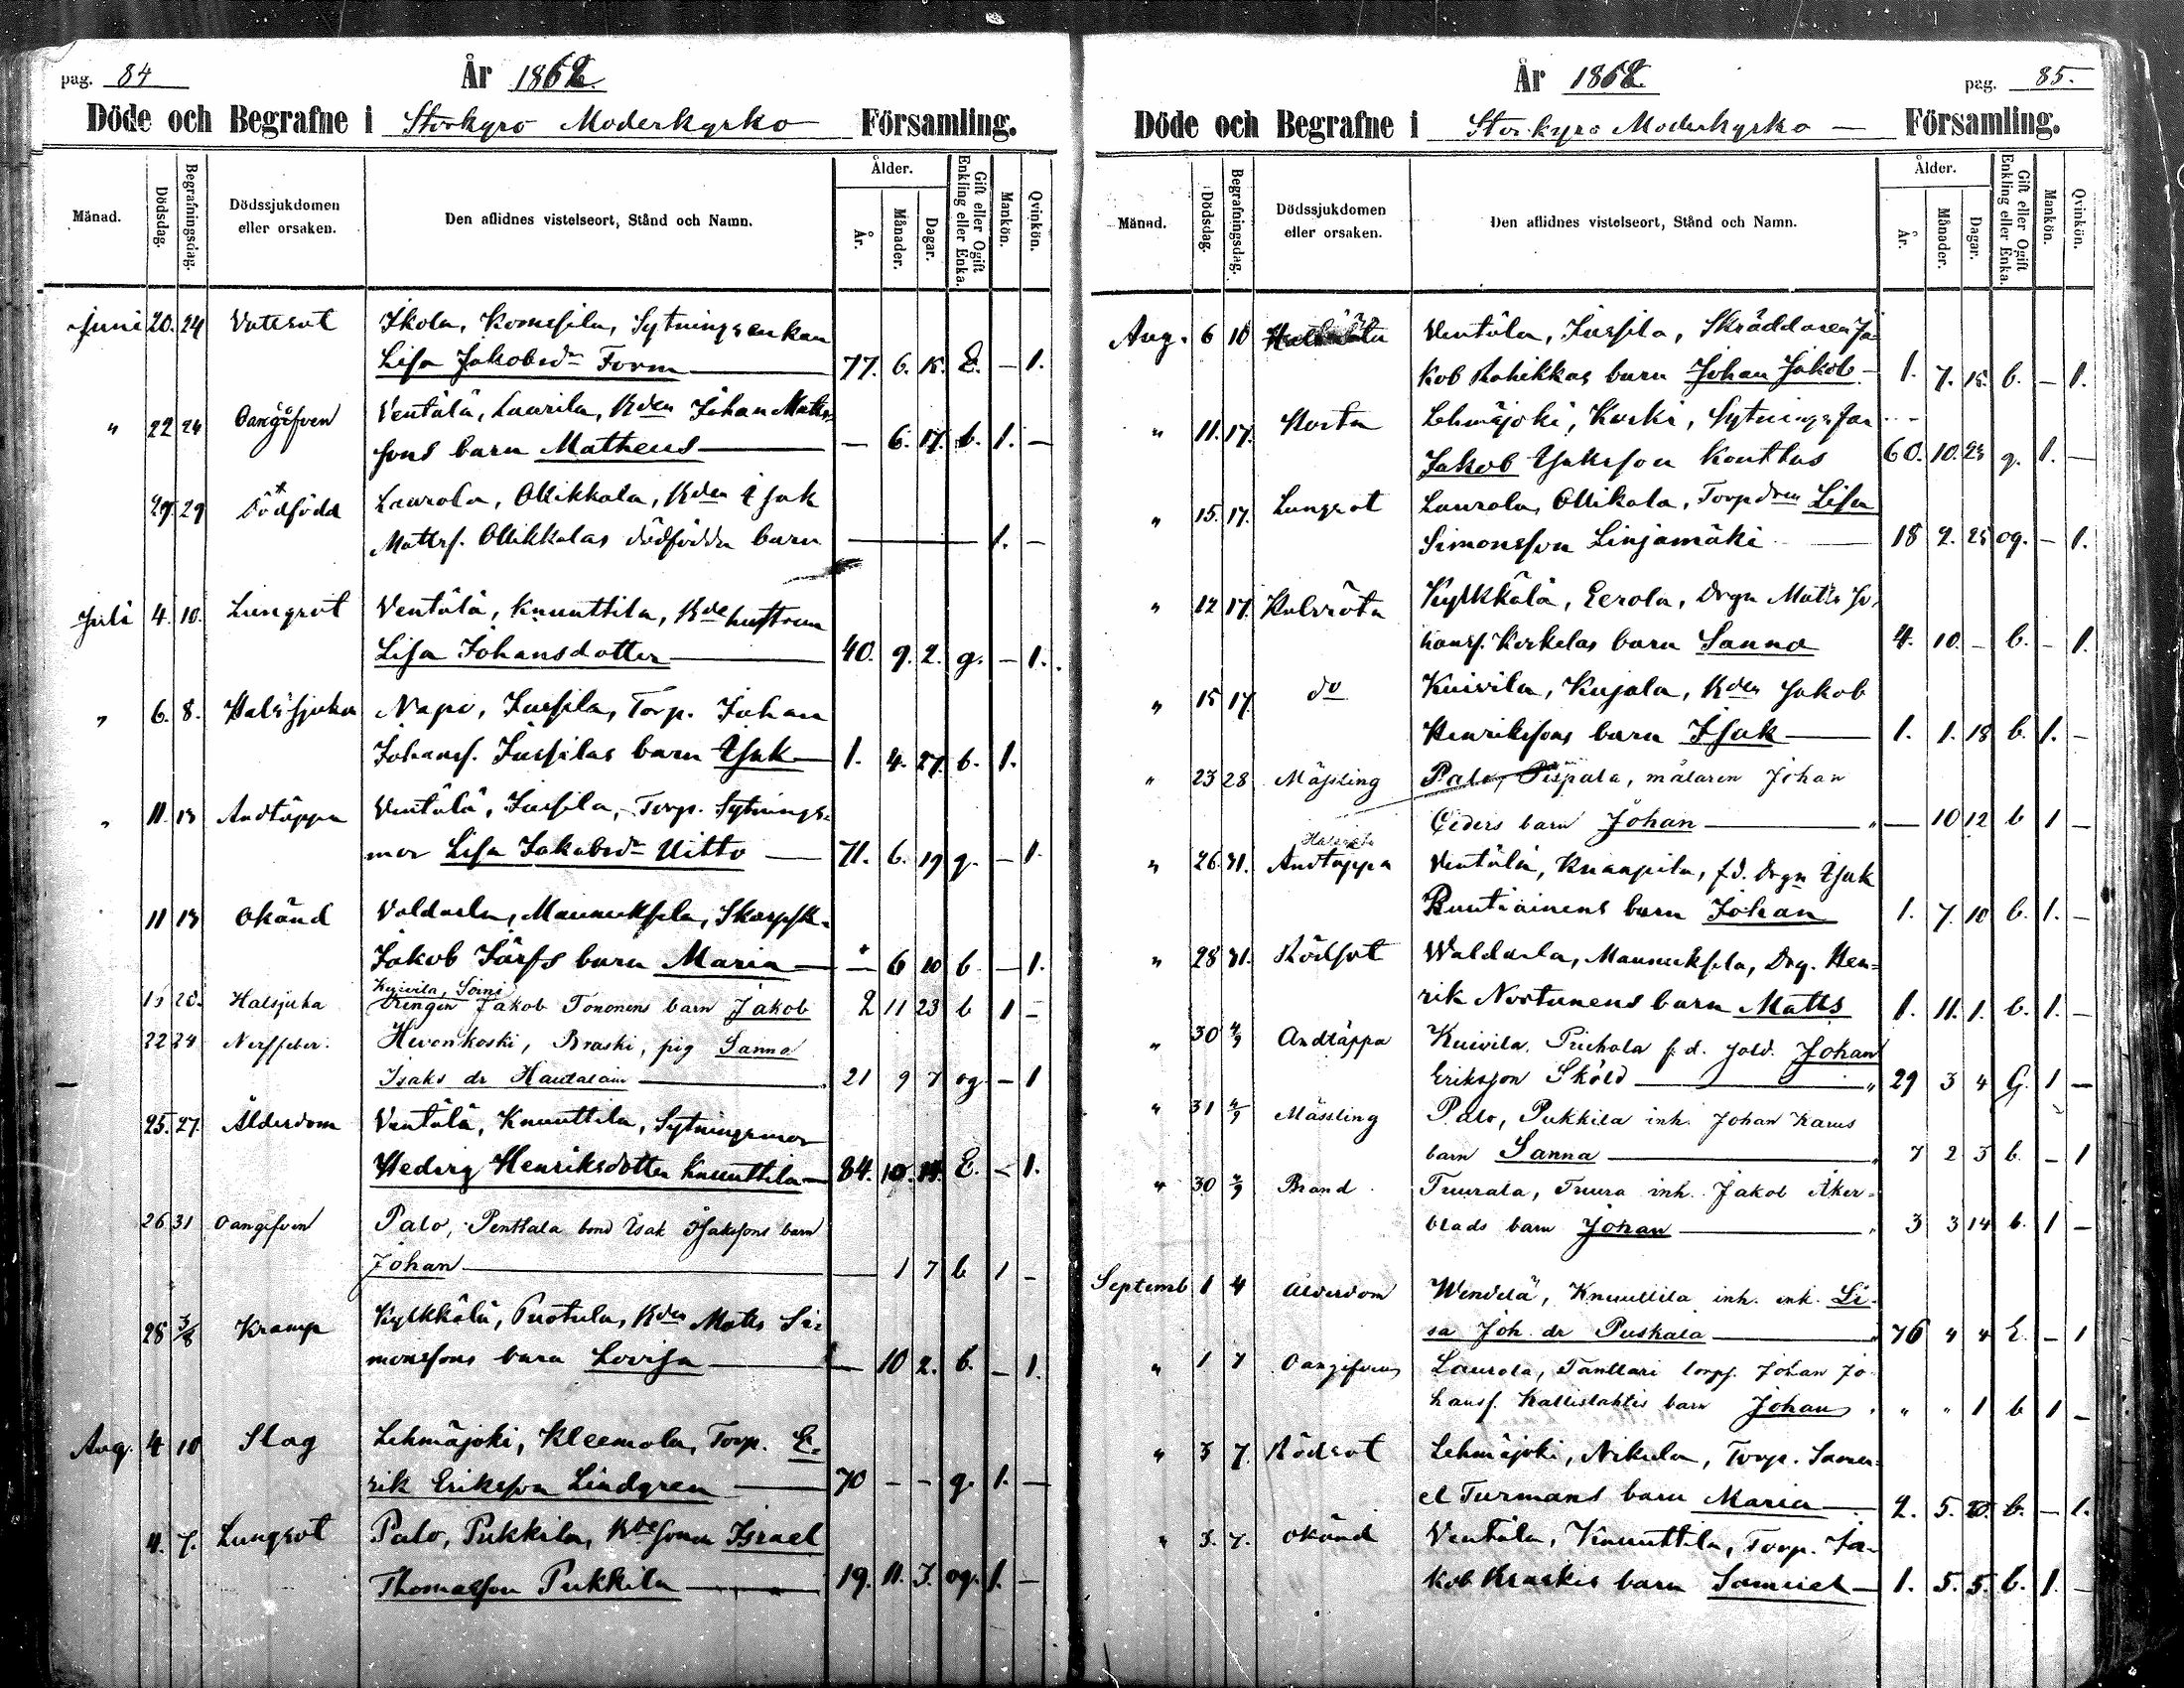 pag. 84
År 1862.
Döde och Begrafne i Storkyro Moderkyrko Församling.
Månad.
Dödsdag.
Begrafningsdag.
Dödssjukdomen eller orsaken.
Den aflidnes vistelseort, Stånd och Namn.
Ålder.
År.
Månader.
Dagar.
Gift eller Ogift Enkling eller Enka.
Mankön.
Qvinkön.
Juni 20. 24 Vatesot Ikola, Komsila, Sytningsenkan
Lisa Jakobsdr Form 77. 6. 15. E. — 1.
" 22 24 Oangifven Ventälä, Laurila, Bden Johan Matts-
sons barn Matheus — 6. 17. b. 1. —
29. 29 Dödfödd Laurola, Ollikkala, Bden Isak
Mattss. Ollikkalas dödfödda barn — 1. —
Juli 4. 10. Lungsot Ventälä, Knuuttila, Bde hustrun
Lisa Johansdotter 40. 9. 2. g. — 1.
" 6. 8. Halssjuka Napo, Jussila, Torp. Johan
Johanss. Jussilas barn Isak 1. 4. 27. b. 1.
" 11. 13 Andtäppa Ventälä, Jussila, Torp. Sytnings-
mor Lisa Jakobsdr Uitto — 71. 6. 19 g. — 1.
11 13 Okänd Valdarla, Maunuksela, Skarpsk.
Jakob Järfs barn Maria — 6 10 b. — 1.
15 20. Halsjuka Kuivila, Soini
Drengen Jakob Tononens barn Jakob 2 11 23 b 1 —
22 24 Nerffeber. Hevonkoski, Braski, pig Sanna
Isaks dr Hautalain 21 9 7 og — 1
25. 27. Ålderdom Ventälä, Knuuttila, Sytningsmor
Hedvig Henriksdotter Knuuttila 84. 10. 14. E. — 1.
26 31 Oangifven Palo, Penttala bond Isak Isakssons barn
Johan — 1 7 b 1 —
28 3/8 Kramp Kylkkälä, Puotula, Bden Matts Si-
monssons barn Lovisa — 10 2. b. — 1.
Aug. 4 10 Slag Lehmäjoki, Kleemola, Torp. E-
rik Eriksson Lindgren 70 — — g. 1. —
4. 7. Lungsot Palo, Pukkila, Bde sonen Israel
Thomasson Pukkila 19. 11. 3. og. 1. —
År 1862.
pag. 85.
Döde och Begrafne i Storkyro Moderkyrko — Församling.
Månad.
Dödsdag.
Begrafningsdag.
Dödssjukdomen eller orsaken.
Den aflidnes vistelseort, Stånd och Namn.
Ålder.
År.
Månader.
Dagar.
Gift eller Ogift Enkling eller Enka.
Mankön.
Qvinkön.
Aug. 6 10 Ventäla, Jussila, Skräddaren Ja-
kob Rahikkas barn Johan Jakob 1. 7. 15. b. — 1.
" 11. 17. Hosta Lehmäjoki, Koski, Sytningsfar
Jakob Isaksson Konttas 60. 10. 23 g. 1. —
" 15. 17. Lungsot Laurola, Ollikala, Torp drn Lisa
Simonsson Linjamäki — 18 2. 25 og. — 1.
" 12 17. Halsröta Kylkkälä, Eerola, Drgn Matts Jo-
hanss. Korkelas barn Sanna 4. 10. — b. — 1.
" 15 17. do Kuivila, Kujala, Bden Jakob
Henrikssons barn Isak 1. 1. 18 b. 1. —
" 23 28 Mässling Palo, Pispala, målaren Johan
Ceders barn Johan — 10 12 b 1 —
" 26. 31. Andtäppa Ventälä, Knaapila, fd. Drgn Isak
Runtiainens barn Johan 1. 7. 10 b. 1. —
" 28 31. Rödsot Waldarla, Maunuksela, Drg. Hen-
rik Nortunens barn Matts 1. 11. 1. b. 1. —
" 30 4/9 Andtäppa Kuivila, Piuhola f.d. sold. Johan
Eriksson Sköld " 29 3 4 G. 1 —
" 31 4/9 Mässling Palo, Pukkila inh. Johan Karus
barn Sanna " 7 2 5 b. — 1
" 30 2/9 Brand. Tuurala, Tuura inh. Jakob Åker-
blads barn Johan " 3 3 14 b. 1 —
Septemb 1 4 Ålderdom Wendelä, Knuuttila inh. enk. Li-
sa Joh. dr Puskala " 76 4 4 E. — 1
" 1 7 Oangifven Laurola, Panttari torps. Johan Jo-
hanss. Kallislahtis barn Johan " " 1 b 1 —
" 3 7. Rödsot Lehmäjoki, Nikula, Torp. Samu-
el Turmans barn Maria 2. 5. 20. b. — 1.
" 3. 7. Okänd Ventälä, Knuuttila, Torp. Ja-
kob Kraskis barn Samuel — 1. 5. 5. b. 1. —